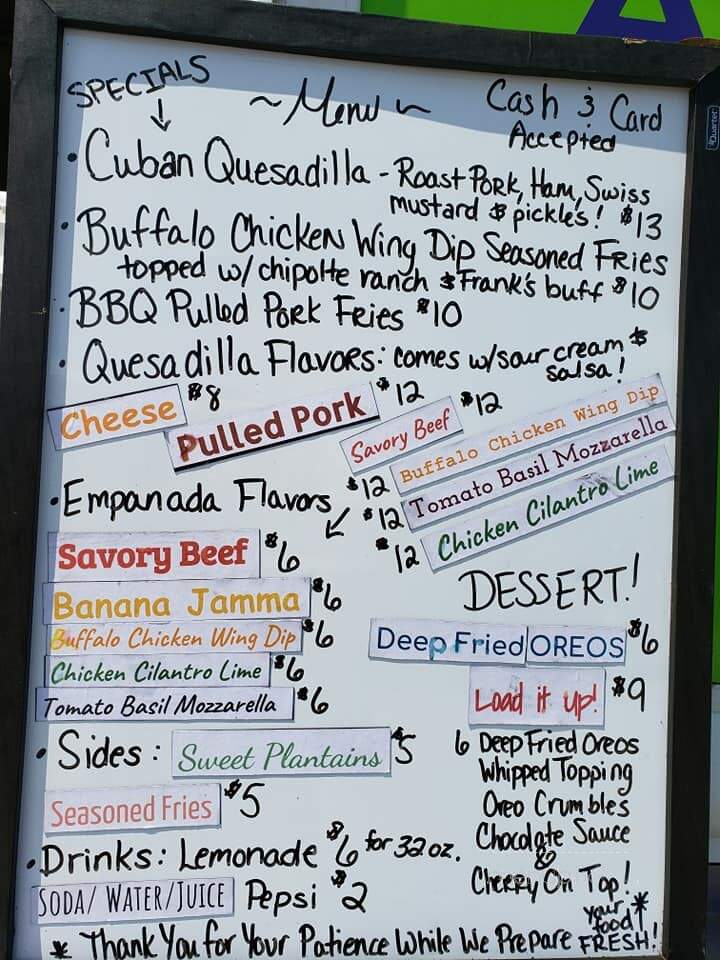 SPECIALS
~ Menu ~
Cash & Card
Accepted
• Cuban Quesadilla - Roast Pork, Ham, Swiss
mustard & pickle's! $13
• Buffalo Chicken Wing Dip Seasoned Fries
topped w/ chipotle ranch & Frank's buff $10
• BBQ Pulled Pork Fries $10
• Quesadilla Flavors: comes w/sour cream &
salsa!
Cheese $8
Pulled Pork $12
Savory Beef $12
$12 Buffalo Chicken Wing Dip
$12 Tomato Basil Mozzarella
$12 Chicken Cilantro Lime
• Empanada Flavors
Savory Beef $6
Banana Jamma $6
Buffalo Chicken Wing Dip $6
Chicken Cilantro Lime $6
Tomato Basil Mozzarella $6
DESSERT!
Deep Fried OREOS $6
Load it up! $9
6 Deep Fried Oreos
Whipped Topping
Oreo Crumbles
Chocolate Sauce
&
Cherry On Top!
• Sides: Sweet Plantains $5
Seasoned Fries $5
• Drinks: Lemonade $6 for 32 oz.
SODA/ WATER/JUICE Pepsi $2
* Thank You for Your Patience While We Prepare your food FRESH! *